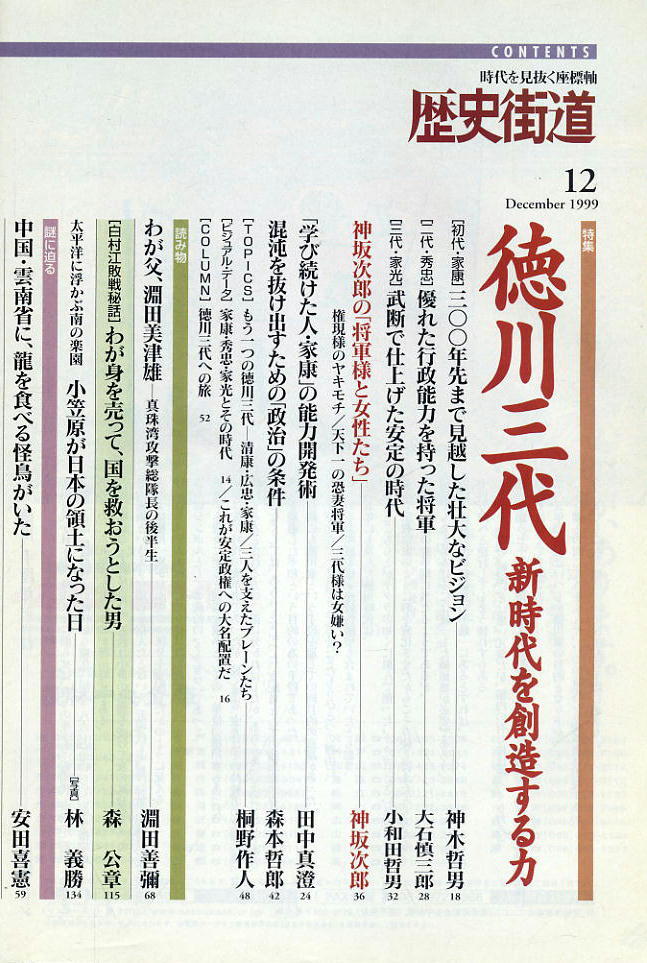 CONTENTS
時代を見抜く座標軸
歴史街道
12
December 1999
特集
徳川三代 新時代を創造する力
[初代・家康] 三〇〇年先まで見越した壮大なビジョン 神木哲男 18
[二代・秀忠] 優れた行政能力を持った将軍 大石慎三郎 28
[三代・家光] 武断で仕上げた安定の時代 小和田哲男 32
神坂次郎の「将軍様と女性たち」 神坂次郎 36
権現様のヤキモチ/天下一の恐妻将軍/三代様は女嫌い?
「学び続けた人・家康」の能力開発術 田中真澄 24
混沌を抜け出すための「政治」の条件 森本哲郎 42
[TOPICS] もう一つの徳川三代―清康・広忠・家康/三人を支えたブレーンたち 桐野作人 48
[ビジュアル・データ] 家康・秀忠・家光とその時代 14/これが安定政権への大名配置だ 16
[COLUMN] 徳川三代への旅 52
読み物
わが父、淵田美津雄―真珠湾攻撃総隊長の後半生 淵田善彌 68
[白村江敗戦秘話] わが身を売って、国を救おうとした男 森 公章 115
太平洋に浮かぶ南の楽園 小笠原が日本の領土になった日 [写真] 林 義勝 134
謎に迫る
中国・雲南省に、龍を食べる怪鳥がいた 安田喜憲 59